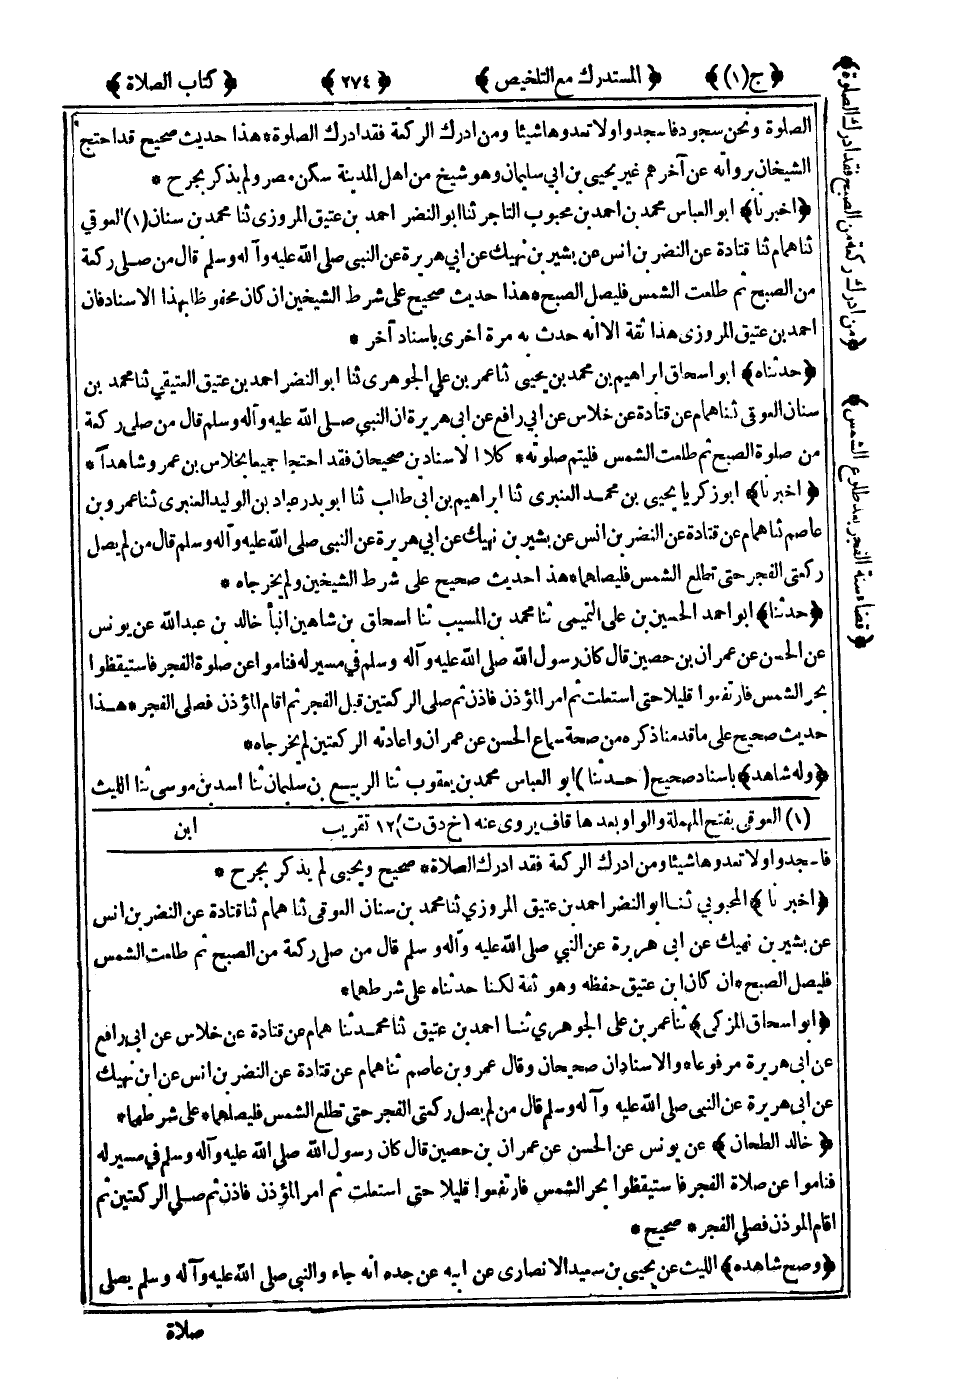 ﴿ ج (١) ﴾ ﴿ المستدرك مع التلخيص ﴾ ﴿ ٢٧٤ ﴾ ﴿ كتاب الصلاة ﴾
﴿ من ادرك ركعة من الصبح فقد ادرك الصلوة ﴾
﴿ قضاء سنة الفجر بعد طلوع الشمس ﴾
الصلوة ونحن سجود فاسجدوا ولا تعدوها شيئا ومن ادرك الركعة فقد ادرك الصلوة * هذا حديث صحيح قد احتج
الشيخان برواته عن آخرهم غير يحيى بن ابي سليمان وهو شيخ من اهل المدينة سكن مصر ولم يذكر بجرح *
﴿ اخبرنا ﴾ ابو العباس محمد بن احمد بن محبوب التاجر ثنا ابو النضر احمد بن عتيق المروزى ثنا محمد بن سنان (١) العوقي
ثنا همام ثنا قتادة عن النضر بن انس عن بشير بن نهيك عن ابي هريرة عن النبى صلى الله عليه وآله وسلم قال من صلى ركعة
من الصبح ثم طلعت الشمس فليصل الصبح * هذا حديث صحيح على شرط الشيخين ان كان محفوظا بهذا الاسناد فان
احمد بن عتيق المروزى هذا ثقة الا انه حدث به مرة اخرى باسناد آخر *
﴿ حدثناه ﴾ ابو اسحاق ابراهيم بن محمد بن يحيى ثنا عمر بن علي الجوهرى ثنا ابو النضر احمد بن عتيق العتيقي ثنا محمد بن
سنان العوقى ثنا همام عن قتادة عن خلاس عن ابي رافع عن ابى هريرة ان النبى صلى الله عليه وآله وسلم قال من صلى ركعة
من صلوة الصبح ثم طلعت الشمس فليتم صلوته * كلا الاسنادين صحيحان فقد احتجا جميعا بخلاس بن عمر وشاهدا *
﴿ اخبرنا ﴾ ابو زكريا يحيى بن محمد العنبرى ثنا ابراهيم بن ابى طالب ثنا ابو بدر عباد بن الوليد العنبرى ثنا عمرو بن
عاصم ثنا همام عن قتادة عن النضر بن انس عن بشير بن نهيك عن ابي هريرة عن النبى صلى الله عليه وآله وسلم قال من لم يصل
ركعتى الفجر حتى تطلع الشمس فليصلهما * هذا حديث صحيح على شرط الشيخين ولم يخرجاه *
﴿ حدثنا ﴾ ابو احمد الحسين بن على التميمى ثنا محمد بن المسيب ثنا اسحاق بن شاهين انبأ خالد بن عبد الله عن يونس
عن الحسن عن عمران بن حصين قال كان رسول الله صلى الله عليه وآله وسلم في مسير له فناموا عن صلوة الفجر فاستيقظوا
بحر الشمس فارتفعوا قليلا حتى استعلت ثم امر المؤذن فاذن ثم صلى الركعتين قبل الفجر ثم اقام المؤذن فصلى الفجر * هذا
حديث صحيح على ما قدمنا ذكره من صحة سماع الحسن عن عمران واعادته الركعتين لم يخرجاه *
﴿ وله شاهد ﴾ باسناد صحيح ( حدثنا ) ابو العباس محمد بن يعقوب ثنا الربيع بن سليمان ثنا اسد بن موسى ثنا الليث
(١) العوقى بفتح المهملة والواو وبعدها قاف يروى عنه (خ د ق ت) ١٢ تقريب ابن
فاسجدوا ولا تعدوها شيئا ومن ادرك الركعة فقد ادرك الصلاة * صحيح ويحيى لم يذكر بجرح *
﴿ اخبرنا ﴾ المحبوبي ثنا ابو النضر احمد بن عتيق المروزي ثنا محمد بن سنان العوقى ثنا همام ثنا قتادة عن النضر بن انس
عن بشير بن نهيك عن ابى هريرة عن النبي صلى الله عليه وآله وسلم قال من صلى ركعة من الصبح ثم طلعت الشمس
فليصل الصبح * ان كان ابن عتيق حفظه وهو ثقة لكنا حدثناه على شرطهما *
﴿ ابو اسحاق المزكى ﴾ ثنا عمر بن على الجوهري ثنا احمد بن عتيق ثنا محمد ثنا همام عن قتادة عن خلاس عن ابى رافع
عن ابى هريرة مرفوعا * والاسنادان صحيحان وقال عمرو بن عاصم ثنا همام عن قتادة عن النضر بن انس عن ابن نهيك
عن ابى هريرة عن النبى صلى الله عليه وآله وسلم قال من لم يصل ركعتى الفجر حتى تطلع الشمس فليصلهما * على شرطهما *
﴿ خالد الطحان ﴾ عن يونس عن الحسن عن عمران بن حصين قال كان رسول الله صلى الله عليه وآله وسلم في مسير له
فناموا عن صلاة الفجر فاستيقظوا بحر الشمس فارتفعوا قليلا حتى استعلت ثم امر المؤذن فاذن ثم صلى الركعتين ثم
اقام الموذن فصلى الفجر * صحيح *
﴿ وصح شاهده ﴾ الليث عن يحيى بن سعيد الانصارى عن ابيه عن جده انه جاء والنبي صلى الله عليه وآله وسلم يصلى
صلاة